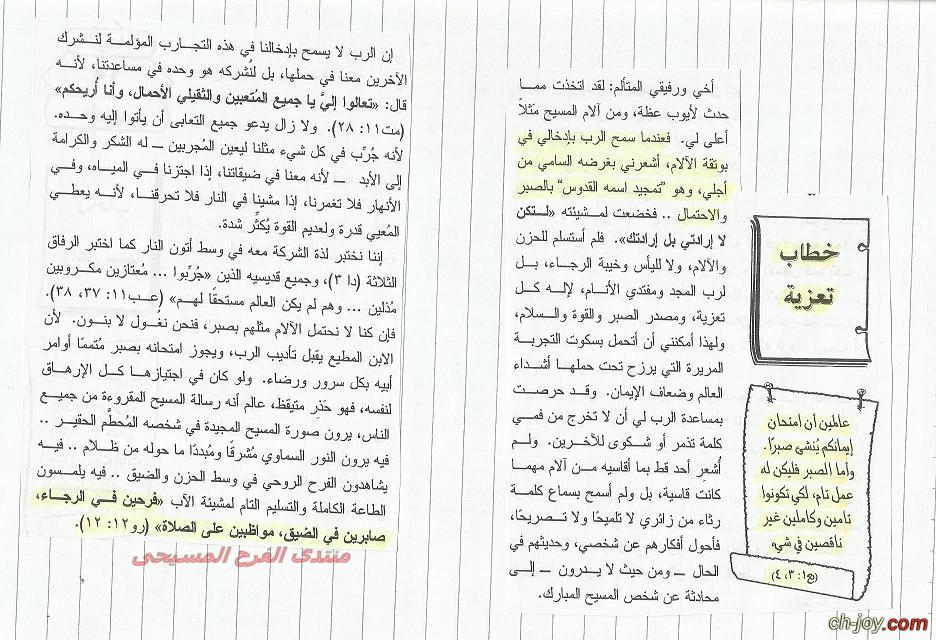 خطاب
تعزية
عالمين أن امتحان
إيمانكم يُنشئ صبرًا.
وأما الصبر فليكن له
عمل تام، لكي تكونوا
تامين وكاملين غير
ناقصين في شيء
(يع١: ٣، ٤)
أخي ورفيقي المتألم: لقد اتخذت مما
حدث لأيوب عظة، ومن آلام المسيح مَثلاً
أعلى لي. فعندما سمح الرب بإدخالي في
بوتقة الآلام، أشعرني بغرضه السامي من
أجلي، وهو "تمجيد اسمه القدوس" بالصبر
والاحتمال .. فخضعت لمشيئته «لتكن
لا إرادتي بل إرادتك». فلم أستسلم للحزن
والآلام، ولا لليأس وخيبة الرجاء، بل
لرب المجد ومفتدي الأنام، لإله كل
تعزية، ومصدر الصبر والقوة والسلام،
ولهذا أمكنني أن أتحمل بسكوت التجربة
المريرة التي يرزح تحت حملها أشداء
العالم وضعاف الإيمان. وقد حرصت
بمساعدة الرب لي أن لا تخرج من فمي
كلمة تذمر أو شكوى للآخرين. ولم
أُشعِر أحد قط بما أقاسيه من آلام مهما
كانت قاسية، بل ولم أسمح بسماع كلمة
رثاء من زائري لا تلميحًا ولا تصريحًا،
فأحول أفكارهم عن شخصي، وحديثهم في
الحال ــ ومن حيث لا يدرون ــ إلى
محادثة عن شخص المسيح المبارك.
إن الرب لا يسمح بإدخالنا في هذه التجارب المؤلمة لنشرك
الآخرين معنا في حملها، بل لنُشركه هو وحده في مساعدتنا، لأنه
قال: «تعالوا إليَّ يا جميع المُتعبين والثقيلي الأحمال، وأنا أُريحكم»
(مت١١: ٢٨). ولا زال يدعو جميع التعابى أن يأتوا إليه وحده.
لأنه جُرِّب في كل شيء مثلنا ليعين المُجربين ــ له الشكر والكرامة
إلى الأبد ــ لأنه معنا في ضيقاتنا، إذا اجتزنا في المياه، وفي
الأنهار فلا تغمرنا، إذا مشينا في النار فلا تحرقنا، لأنه يعطي
المُعيي قدرة ولعديم القوة يُكثِّر شدة.
إننا نختبر لذة الشركة معه في وسط أتون النار كما اختبر الرفاق
الثلاثة (دا ٣)، وجميع قديسيه الذين «جُرِّبوا ... مُعتازين مكروبين
مُذلين ... وهم لم يكن العالم مستحقًا لهم» (عب١١: ٣٧، ٣٨).
فإن كنا لا نحتمل الآلام مثلهم بصبر، فنحن نغُول لا بنون. لأن
الابن المطيع يقبل تأديب الرب، ويجوز امتحانه بصبر مُتممًا أوامر
أبيه بكل سرور ورضاء. ولو كان في اجتيازها كل الإرهاق
لنفسه، فهو حَذِر متيقظ، عالم أنه رسالة المسيح المقروءة من جميع
الناس، يرون صورة المسيح المجيدة في شخصه المُحطَّم الحقير ..
فيه يرون النور السماوي مُشرقًا ومُبددًا ما حوله من ظلام .. فيه
يشاهدون الفرح الروحي في وسط الحزن والضيق .. فيه يلمسون
الطاعة الكاملة والتسليم التام لمشيئة الآب «فرحين في الرجاء،
صابرين في الضيق، مواظبين على الصلاة» (رو١٢: ١٢).
منتدى الفرح المسيحى
ch-joy.com